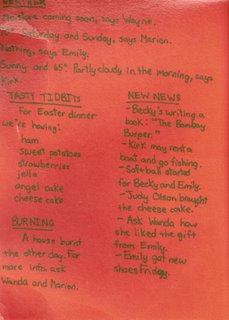 WEATHER
More coming soon, says Wayne.
Saturday and Sunday, says Marion.
Nothing, says Emily.
Sunny and 65°. Partly cloudy in the morning, says
Kirk.
TASTY TIDBITS
For Easter dinner
we're having:
ham
sweet potatoes
strawberries
jello
angel cake
cheese cake
BURNING
A house burnt
the other day. For
more info ask
Wanda and Marion.
NEW NEWS
- Becky's writing a
book: "The Bombay
Burper."
- Kirk may rent a
boat and go fishing.
- Softball started
for Becky and Emily.
- Judy Olson brought
the cheese cake.
- Ask Wanda how
she liked the gift
from Emily.
- Emily got new
shoes Friday.